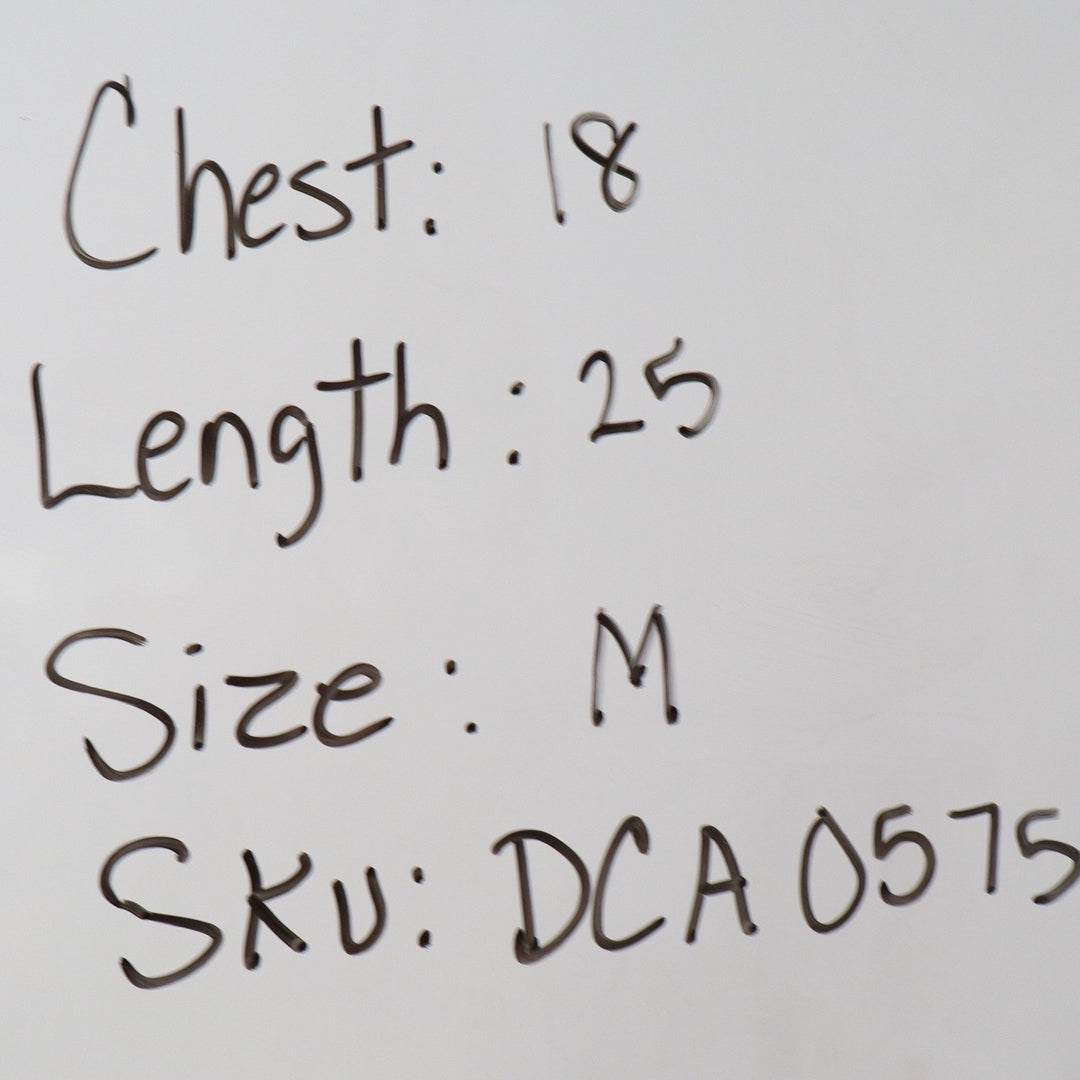 Chest: 18
Length: 25
Size: M
SKU: DCA 0575